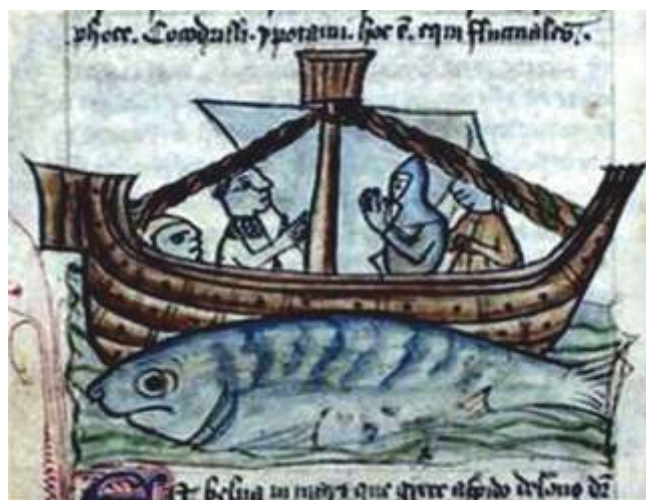 phoce. Cocodrilli. ypotami. hoc ē. equi fluuiales.
Est belua in mari que grece aspido delone dr̄